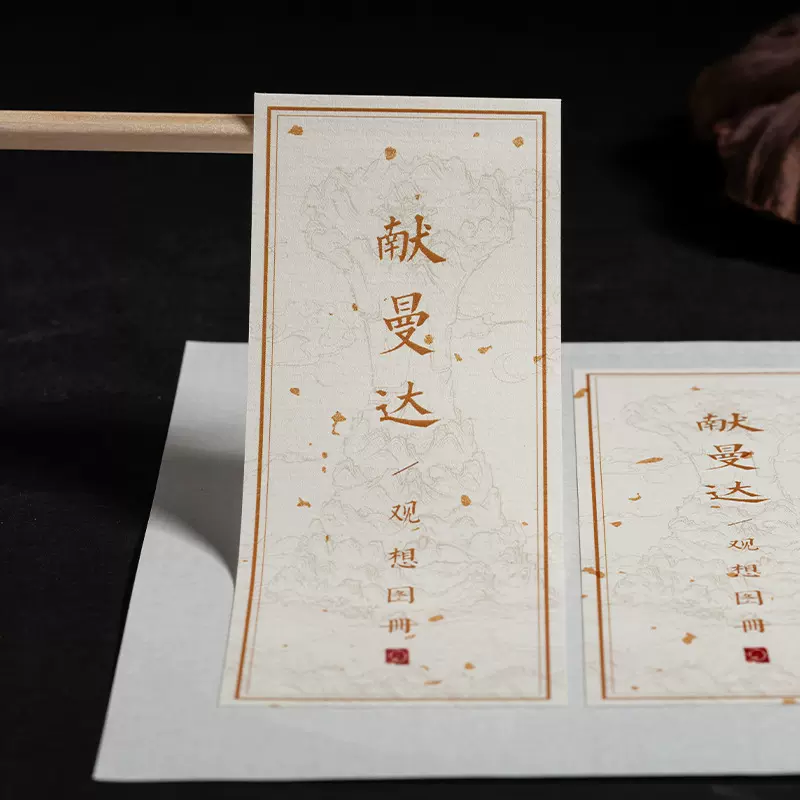 献曼达/观想图册
献曼达/观想图册